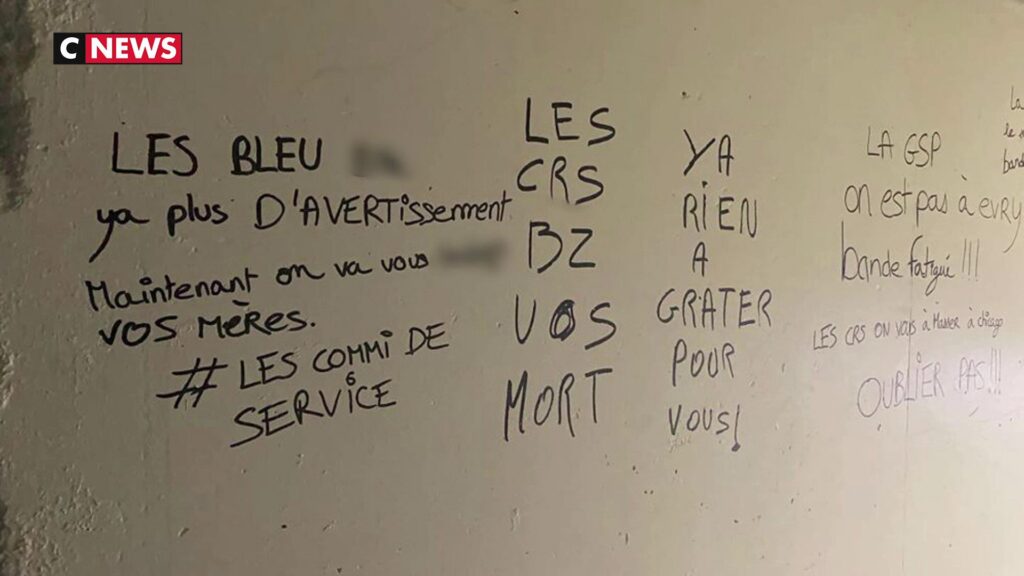 C NEWS
LES BLEU
ya plus D'AVERTissement
Maintenant on va vous
VOS MÈRES.
# LES COMMI DE
SERVICE
LES
CRS
BZ
VOS
MORT
YA
RiEN
A
GRATER
POUR
VOUS!
LA GSP
on est pas à EVRY
bande fatigué !!!
LES CRS ON VOUS à à chicago
OUBLIER PAS!!!
La
le
band